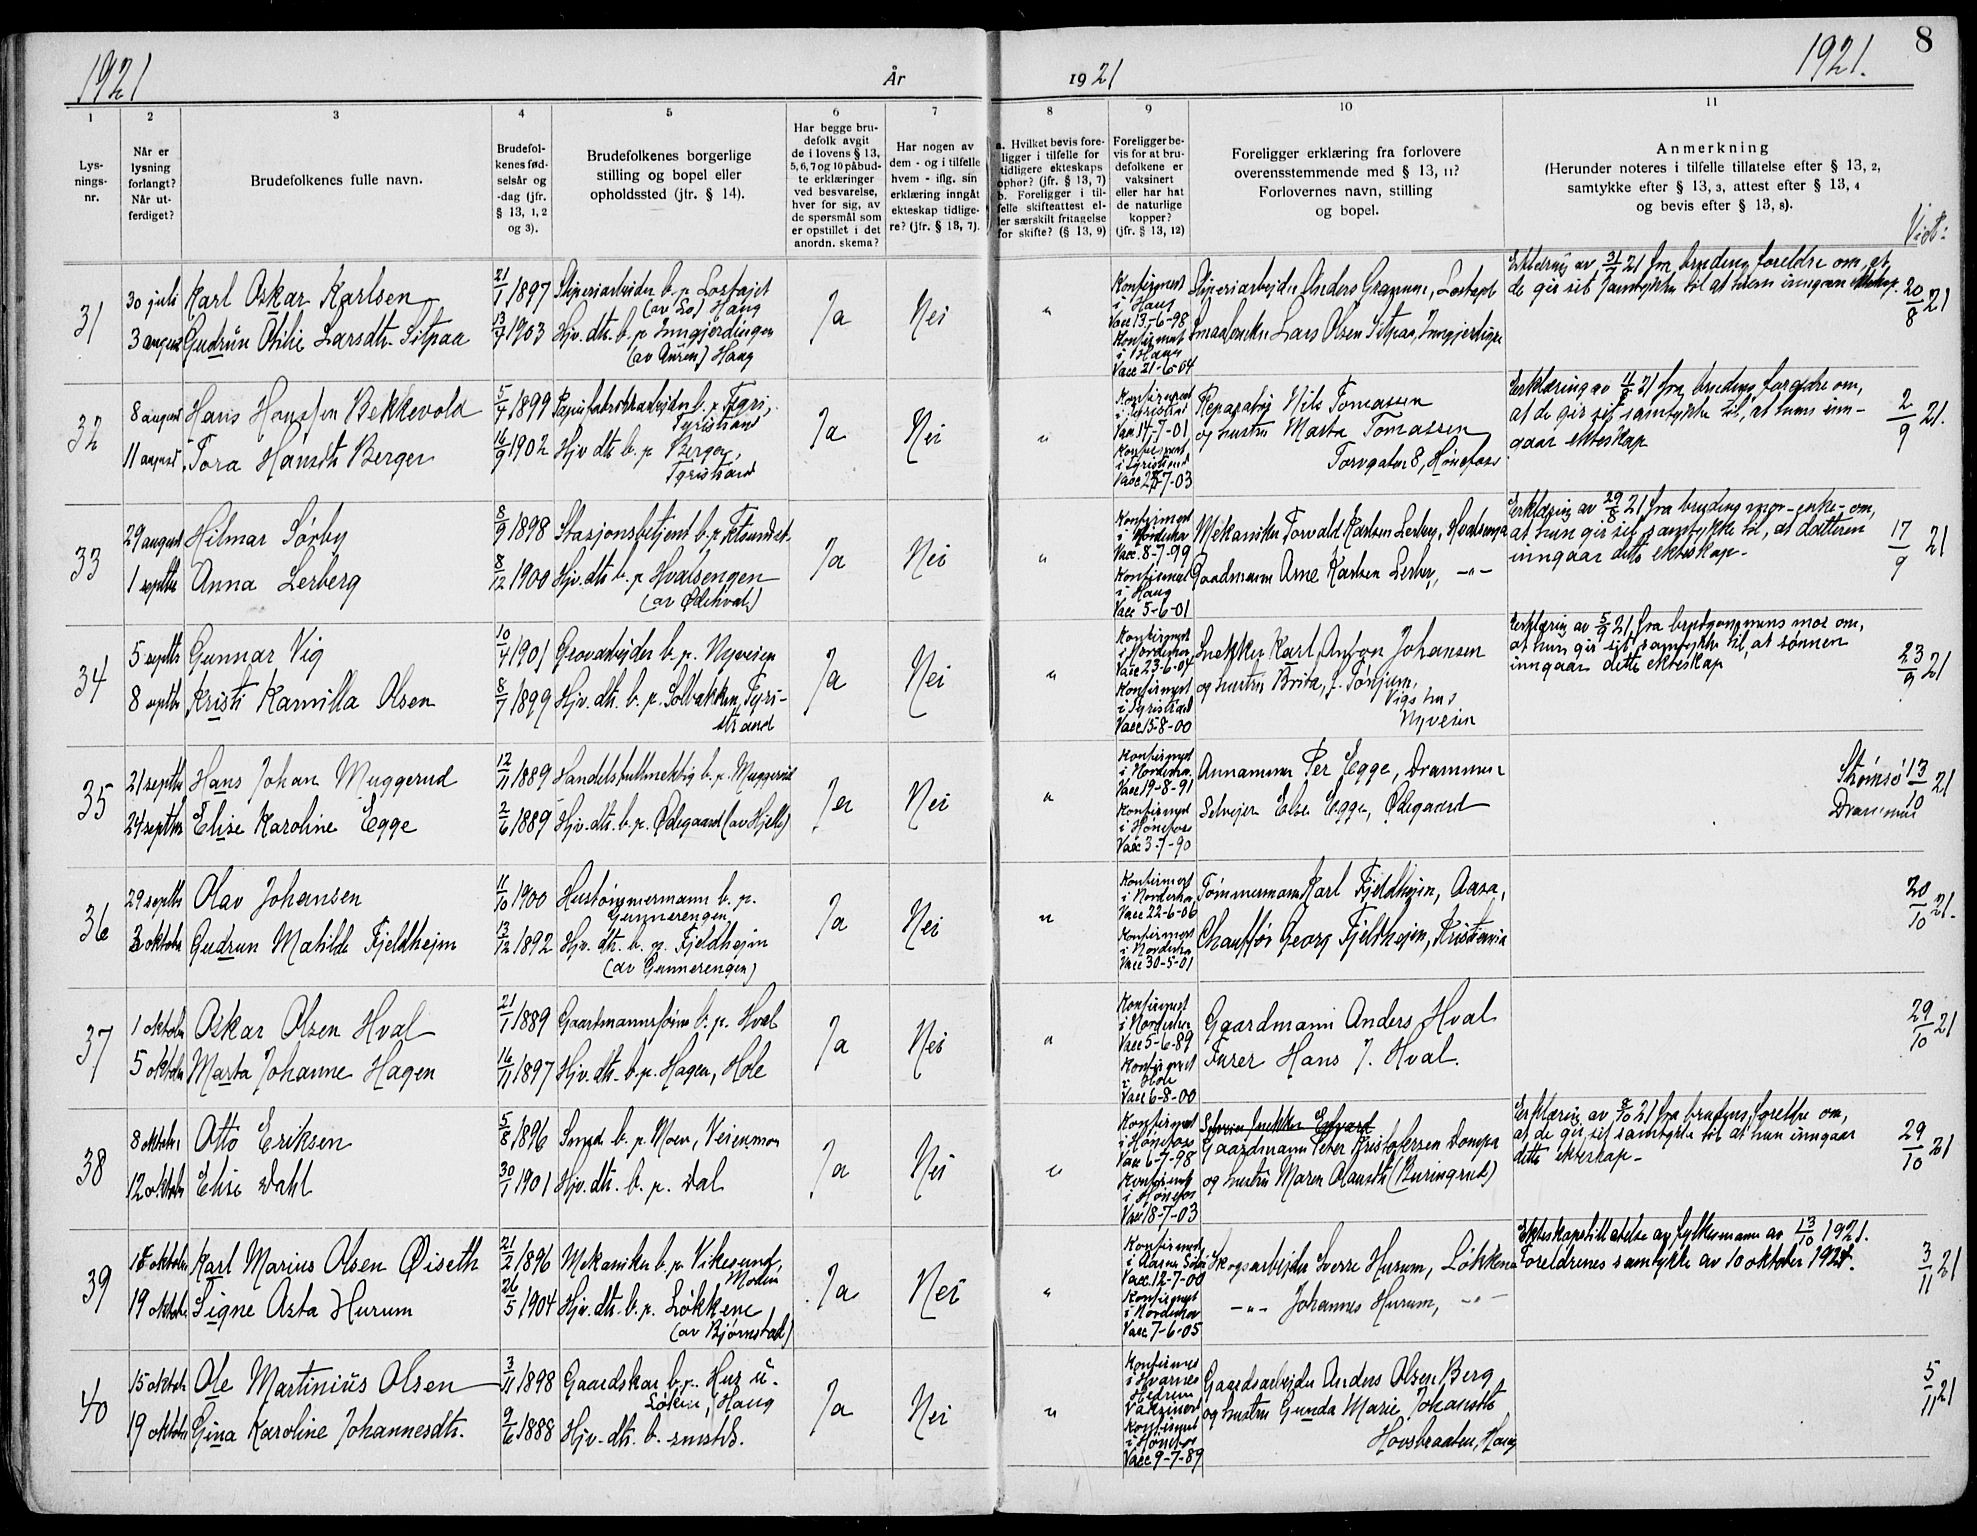 1921 År 1921 1921. 8
1 2 3 4 5 6 7 8 9 10 11
Lys-
nings-
nr.
Når er
lysning
forlangt?
Når ut-
ferdiget?
Brudefolkenes fulle navn.
Brudefol-
kenes fød-
selsår og
-dag (jfr.
§ 13, 1, 2
og 3).
Brudefolkenes borgerlige
stilling og bopel eller
opholdssted (jfr. § 14).
Har begge bru-
defolk avgit
de i lovens § 13,
5, 6, 7 og 10 påbud-
te erklæringer
ved besvarelse,
hver for sig, av
de spørsmål som
er opstillet i det
anordn. skema?
Har nogen av
dem - og i tilfelle
hvem - iflg. sin
erklæring inngåt
ekteskap tidlige-
re? (jfr. § 13, 7).
a. Hvilket bevis fore-
ligger i tilfelle for
tidligere ekteskaps
ophør? (jfr. § 13, 7)
b. Foreligger i til-
felle skifteattest el-
ler særskilt fritagelse
for skifte? (§ 13, 9)
Foreligger be-
vis for at bru-
defolkene er
vaksinert
eller har hat
de naturlige
kopper?
(jfr. § 13, 12)
Foreligger erklæring fra forlovere
overensstemmende med § 13, 11?
Forlovernes navn, stilling
og bopel.
Anmerkning
(Herunder noteres i tilfelle tillatelse efter § 13, 2,
samtykke efter § 13, 3, attest efter § 13, 4
og bevis efter § 13, 8).
31
30 juli Karl Oskar Karlsen 21/1 1897 Sliperiarbeider b. p.
(av Lo) Haug
3 august Gudrun Otilie Larsdtr. Sitpaa 13/7 1903 Hjv. dtr. b. p. Inngjerdingen
(av Auren) Haug
Ja Nei "
Konfirmert
i Haug
Vacc 13-6-98
Konfirmert
i Haug
Vacc 21-6-04
Sliperiarbeider Anders
Lars Olsen Sitpaa,
Erklæring av 31/7 21 fra brudens foreldre om, at
de gir sit samtykke til at hun inngaar ekteskap.
20/8 21
32
8 august Hans Hanssen Bekkevold 5/7 1899 Papirfabrikkarbeider b. p. Tyri,
Tyristrand
11 august Tora Hansdtr. Berger 16/9 1902 Hjv dtr. b. p Berger,
Tyristrand
Ja Nei "
Konfirmert
i Tyristrand
Vacc 14-7-01
Konfirmert
i Tyristrand
Reparatør Nils Tomassen
og hustru Marta Tomassen
Torvgaten 8, Hønefoss
Erklæring av 4/8 21 fra brudens foreldre om,
at de gir sit samtykke til, at hun inn-
gaar ekteskap
2/9 21.
33
29 august Hilmar Sørby 8/9 1898 Stasjonsbetjent b. p.
1 septbr Anna Lerberg 8/12 1900 Hjv. dtr. b. p Hvalsengen
Ja Nei "
Konfirmert
i Norderhov
Vacc. 8-7-99
Konfirmert
i Haug
Vacc 5-6-01
Mekaniker Torvald Karlsen Lerberg,
Gaardmann Arne Karlsen Lerberg, -"-
Erklæring av 29/8 21 fra brudens mor - enke - om,
at hun gir sit samtykke til, at datteren
inngaar dette ekteskap -
17/9 21
34
5 septbr Gunnar Vig 10/4 1901 Grovarbeider b. p. Nyveien
8 septbr Kristi Kamilla Olsen 8/7 1899 Hjv. dtr. b. p. Solbakken, Tyri-
strand
Ja Nei "
Konfirmert
i Norderhov
Vacc 23-6-04
Konfirmert
i Tyristrand
Vacc 15-8-00
Snekker Karl Anton Johansen
og hustru Brita, f. Tønjum,
Vigs hus
Nyveien
Erklæring av 5/9 21, fra brudgommens mor om,
at hun gir sit samtykke til, at sønnen
inngaar dette ekteskap
23/9 21
35
21 septbr Hans Johan Muggerud 12/11 1889 Handelsfullmektig b. p. Muggerud
24 septbr Elise Karoline Egge 2/6 1889 Hjv. dtr. b. p. Ødegaard (av Hjelle)
Ja Nei "
Konfirmert
i Norderhov
Vacc 19-8-91
Konfirmert
i Hønefoss
Vacc 3-7-90
Per Egge, Drammen
Selveier Ebbe Egge, Ødegaard
Strømsø 13/10 21
Drammen
36
29 septbr Olav Johansen 11/10 1900 Hustømmermann b. p.
Gunnerengen
3 oktober Gudrun Matilde Fjeldheim 13/12 1892 Hjv. dtr. b. p. Fjeldheim
(av Gunnerengen)
Ja Nei "
Konfirmert
i Norderhov
Vacc 22-6-06
Konfirmert
i Norderhov
Vacc 30-5-01
Tømmermann Karl Fjeldheim, Aasa,
Chauffør Georg Fjeldheim, Kristiania
20/10 21.
37
1 oktober Oskar Olsen Hval 21/1 1889 Gaardmannssønn b. p. Hval
5 oktober Marta Johanne Hagen 16/11 1897 Hjv. dtr. b. p. Hagen, Hole
Ja Nei "
Konfirmert
i Norderhov
Vacc 5-6-89
Konfirmert
i Hole
Vacc 6-8-00
Gaardmann Anders Hval
Furer Hans J. Hval.
29/10 21
38
8 oktober Otto Eriksen 5/8 1896 Smed b. p. Moen, Veienmoen
12 oktober Elise Dahl 30/1 1901 Hjv. dtr. b. p. Dal
Ja Nei "
Konfirmert
i Hønefoss
Vacc 6-7-98
Konfirmert
i Hønefoss
Vacc 18-7-03
Gaardmann Peter Kristofersen Dompa
og hustru Maren Olausdtr. (Buringrud)
Erklæring av 8/10 21 fra brudens foreldre om,
at de gir sit samtykke til at hun inngaar
dette ekteskap -
29/10 21
39
Karl Marius Olsen Øiseth 21/2 1896 Mekaniker b. p. Vikesund,
Modum
19 oktober Signe Asta Hurum 26/5 1904 Hjv. dtr. b. p. Løkkene
(av Bjørnstad)
Ja Nei "
Konfirmert
Vacc. 12-7-00
Konfirmert
i Norderhov
Vacc 7-6-05
Skogsarbeider Sverre Hurum, Løkkene
-"- Johannes Hurum, -"-
Ekteskapstillatelse av fylkesmann av 13/10 1921.
Foreldrenes samtykke av 10 oktober 1921.
3/11 21
40
15 oktober Ole Martinius Olsen 3/11 1898 Gaardskar b. p. Hus u.
Løken, Haug
19 oktober Gina Karoline Johannesdtr. 9/6 1888 Hjv. dtr. b. smstds.
Ja Nei "
Konfirmert
i Hvarnes
Hedrum
Vaksinert
Konfirmert
i Hønefoss
Vacc 9-7-89
Gaardsarbeider Anders Olsen Berg
og hustru Gunda Marie Johansdtr
Hovsbraaten, Haug
5/11 21